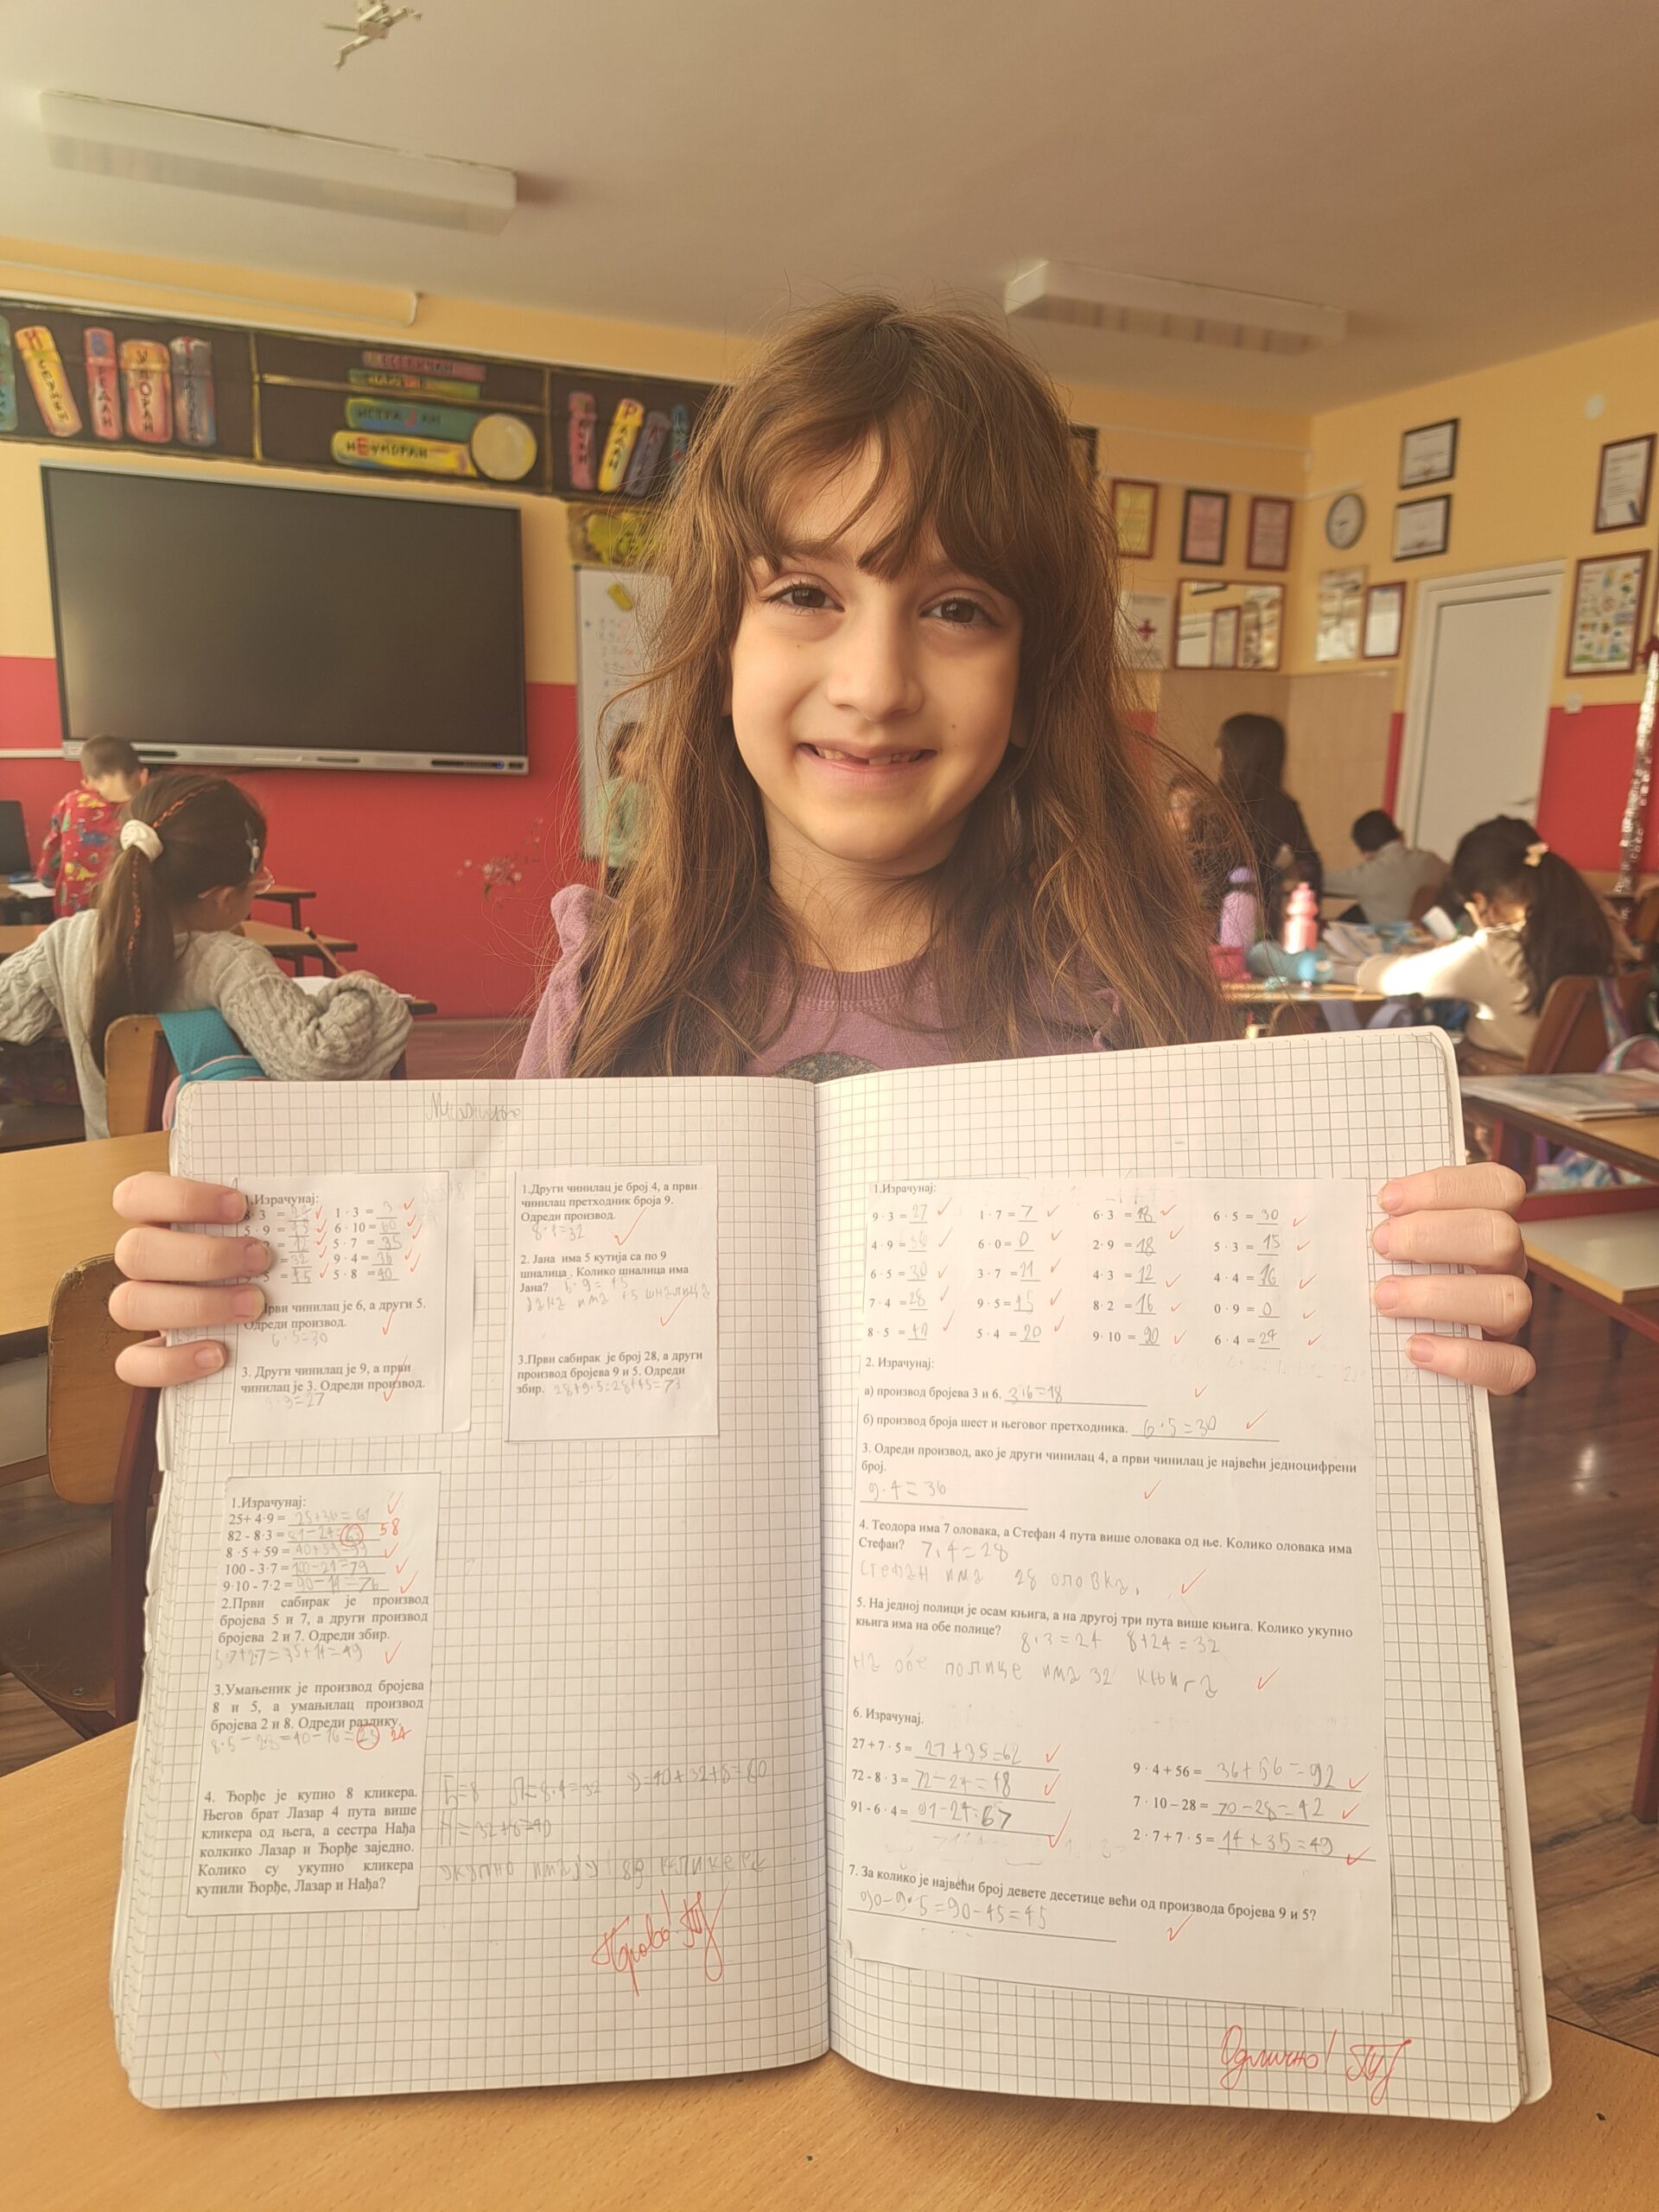 ВРЕДАН
УПОРАН
ИСТРАЈАН
НЕУМОРАН
1.Израчунај:
8· 3 =
1 · 3 = 3
5 · 9 =
6 · 10 = 60
5 · 7 = 35
32
9 · 4 = 36
5 · 8 = 40
Први чинилац је 6, а други 5.
Одреди производ.
6·5=30
3. Други чинилац је 9, а први
чинилац је 3. Одреди производ.
3=27
1.Други чинилац је број 4, а први
чинилац претходник броја 9.
Одреди производ.
8·4=32
2. Јана има 5 кутија са по 9
шналица . Колико шналица има
Јана? 5·9=45
Јана има 45 шналица
3.Први сабирак је број 28, а други
производ бројева 9 и 5. Одреди
збир. 28+9·5=28+45=73
1.Израчунај:
25+ 4·9 = 25+36=61
82 - 8·3 = 58
8 ·5 + 59 = 40+59=99
100 - 3·7 = 100-21=79
9·10 - 7·2 = 90-14=76
2.Први сабирак је производ
бројева 5 и 7, а други производ
бројева 2 и 7. Одреди збир.
5·7+2·7=35+14=49
3.Умањеник је производ бројева
8 и 5, а умањилац производ
бројева 2 и 8. Одреди разлику.
40-16=23 24
4. Ђорђе је купио 8 кликера.
Његов брат Лазар 4 пута више
кликера од њега, а сестра Нађа
колкико Лазар и Ђорђе заједно.
Колико су укупно кликера
купили Ђорђе, Лазар и Нађа?
Ђ=8 Л=8·4=32 У=40+32+8=80
Н=32+8=40
Браво!
1.Израчунај:
9 · 3 = 27 1 · 7 = 7 6· 3 = 18 6 · 5 = 30
4 · 9 = 36 6 · 0= 0 2· 9 = 18 5 · 3 = 15
6 · 5 = 30 3 · 7 = 21 4· 3 = 12 4 · 4 = 16
7 · 4 = 28 9 · 5 = 45 8· 2 = 16 0 · 9 = 0
8 · 5 = 40 5 · 4 = 20 9· 10 = 90 6 · 4 = 24
2. Израчунај:
а) производ бројева 3 и 6. 3·6=18
б) производ броја шест и његовог претходника. 6·5=30
3. Одреди производ, ако је други чинилац 4, а први чинилац је највећи једноцифрени
број.
9·4=36
4. Теодора има 7 оловака, а Стефан 4 пута више оловака од ње. Колико оловака има
Стефан? 7·4=28
Стефан има 28 оловка.
5. На једној полици је осам књига, а на другој три пута више књига. Колико укупно
књига има на обе полице? 8·3=24 8+24=32
На обе полице има 32 књига
6. Израчунај.
27 + 7 · 5 = 27+35=62
9 · 4 + 56 = 36+56=92
72 - 8 · 3 = 72-24=48
7 · 10 – 28 = 70-28=42
91 - 6 · 4 = 91-24=67
2 · 7 + 7 · 5 = 14+35=49
7. За колико је највећи број девете десетице већи од производа бројева 9 и 5?
90-9·5=90-45=45
Одлично!